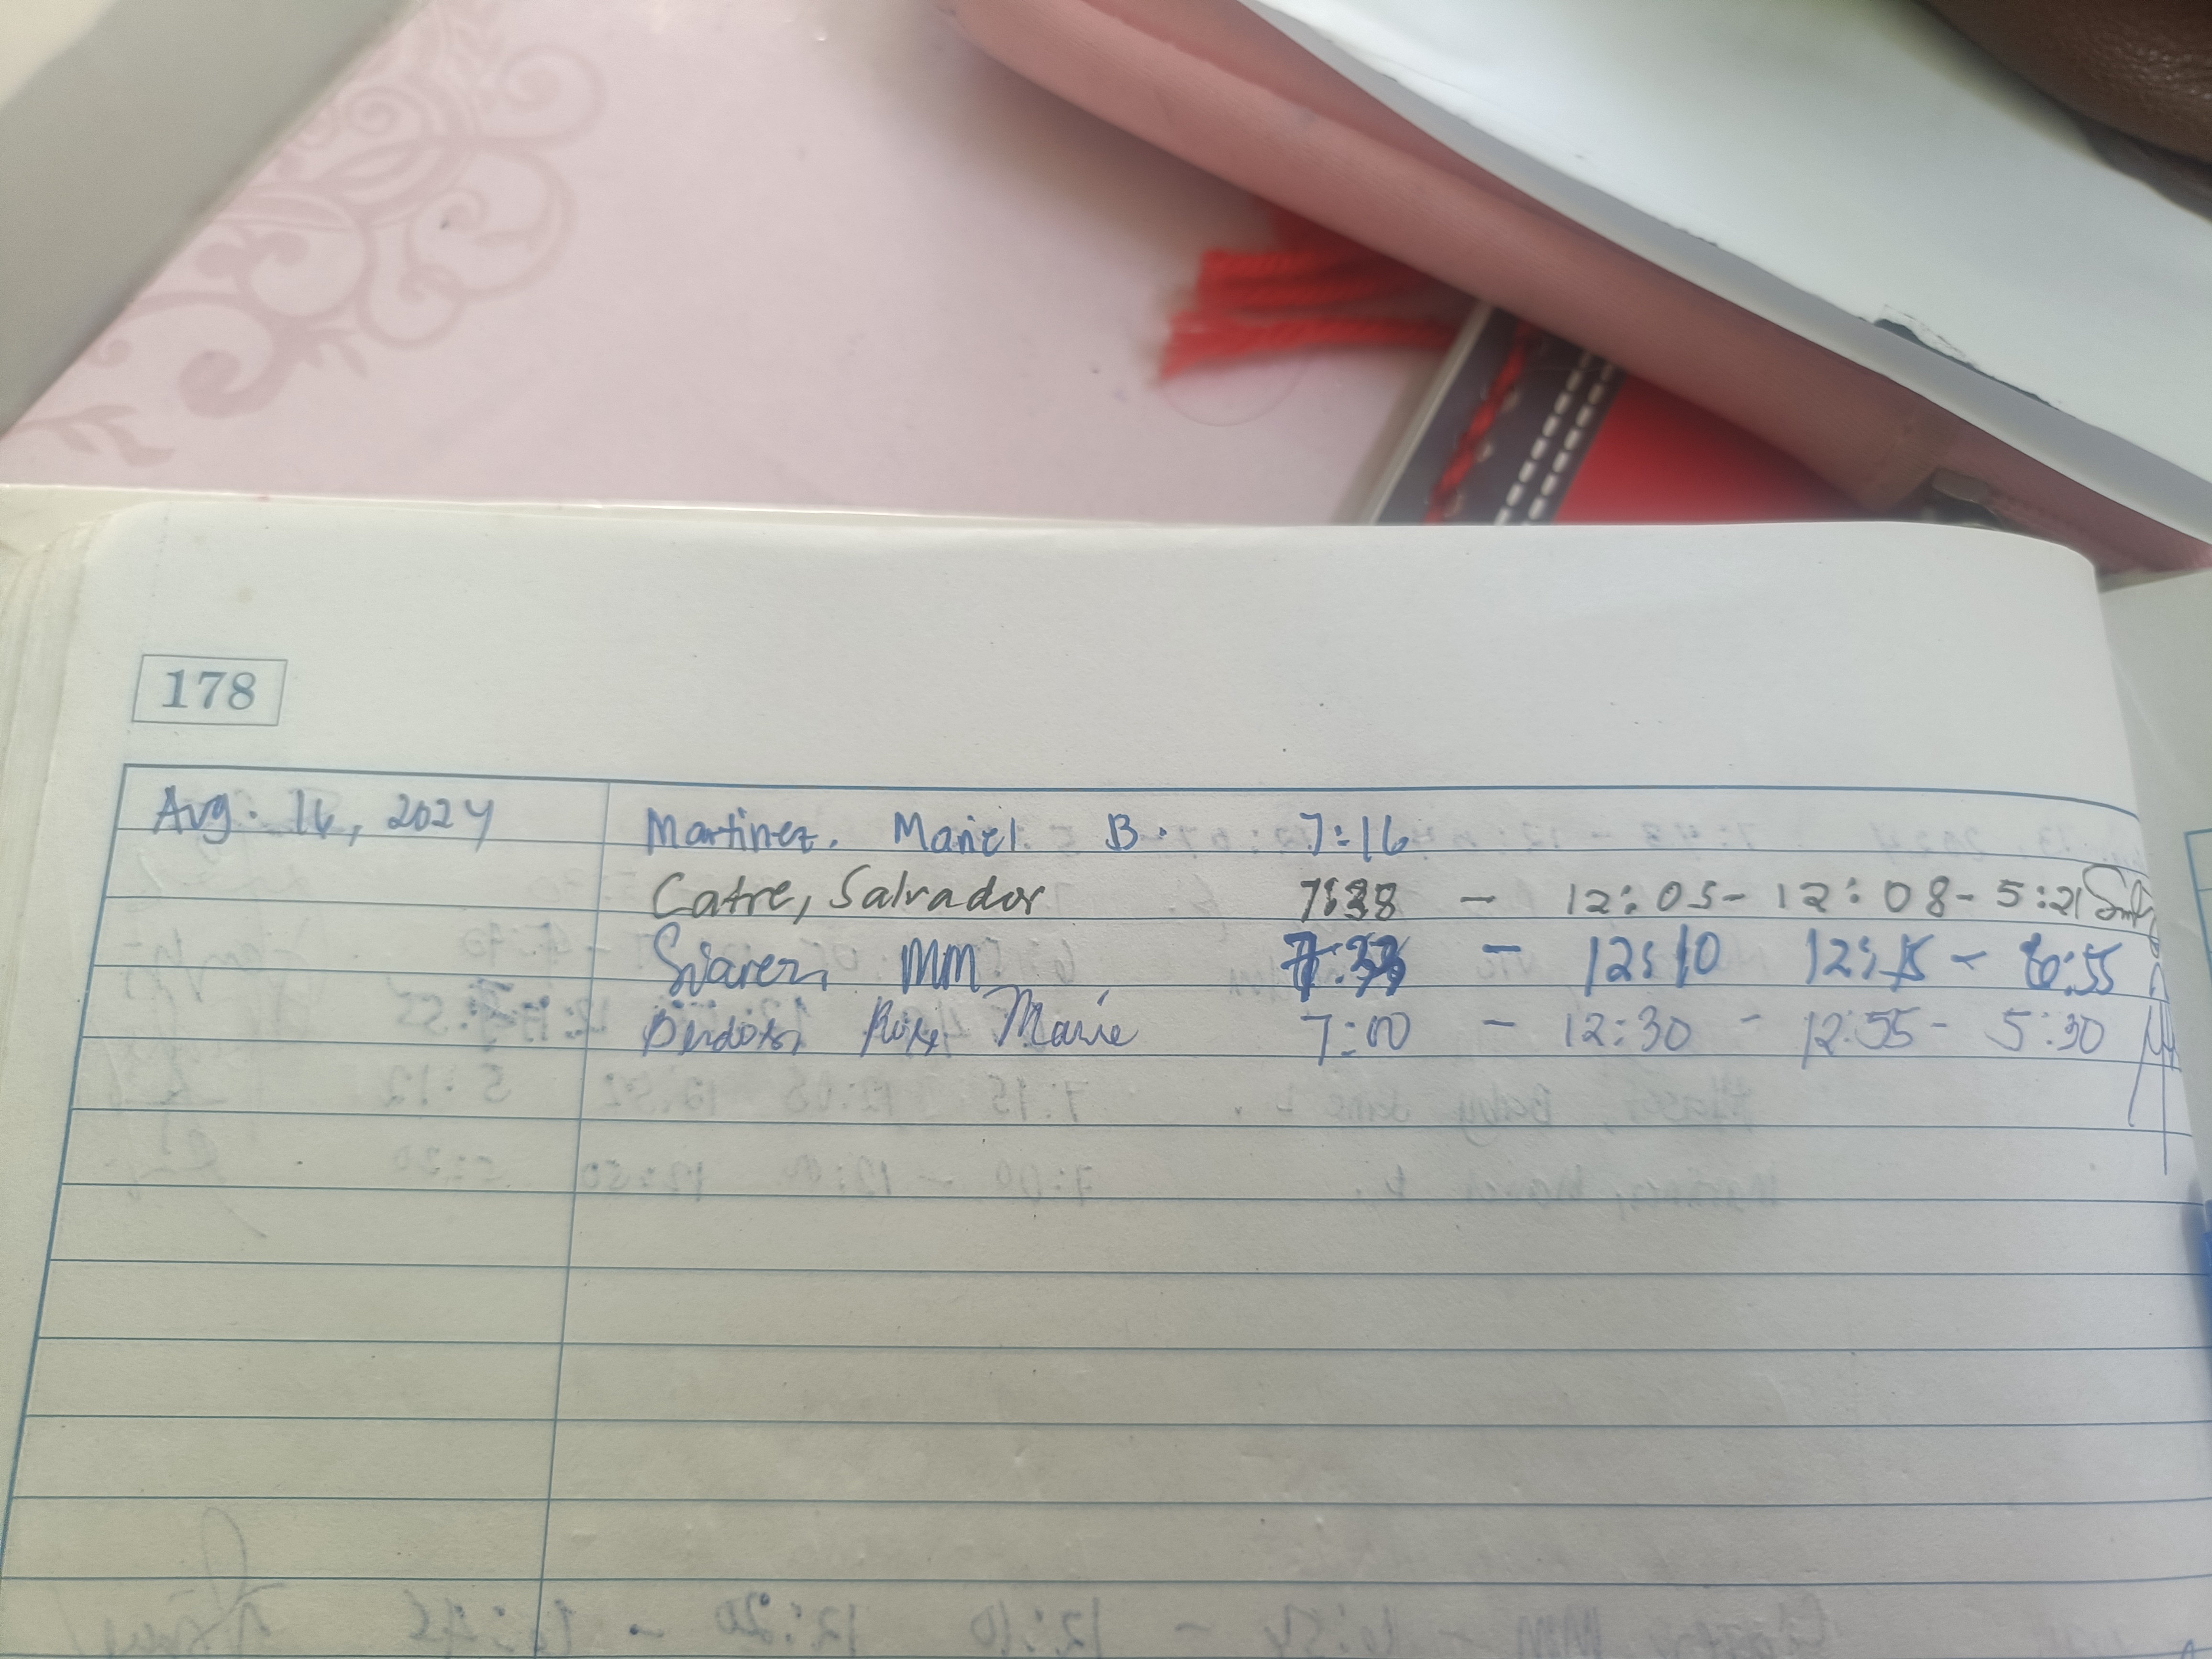 178
Aug. 16, 2024 Martinez, Mariel B. 7:16
Catre, Salvador 7:38 - 12:05 - 12:08 - 5:21
Suarez, MM - 12:10 12:15 - 6:55
Rose Marie 7:00 - 12:30 - 12:55 - 5:30